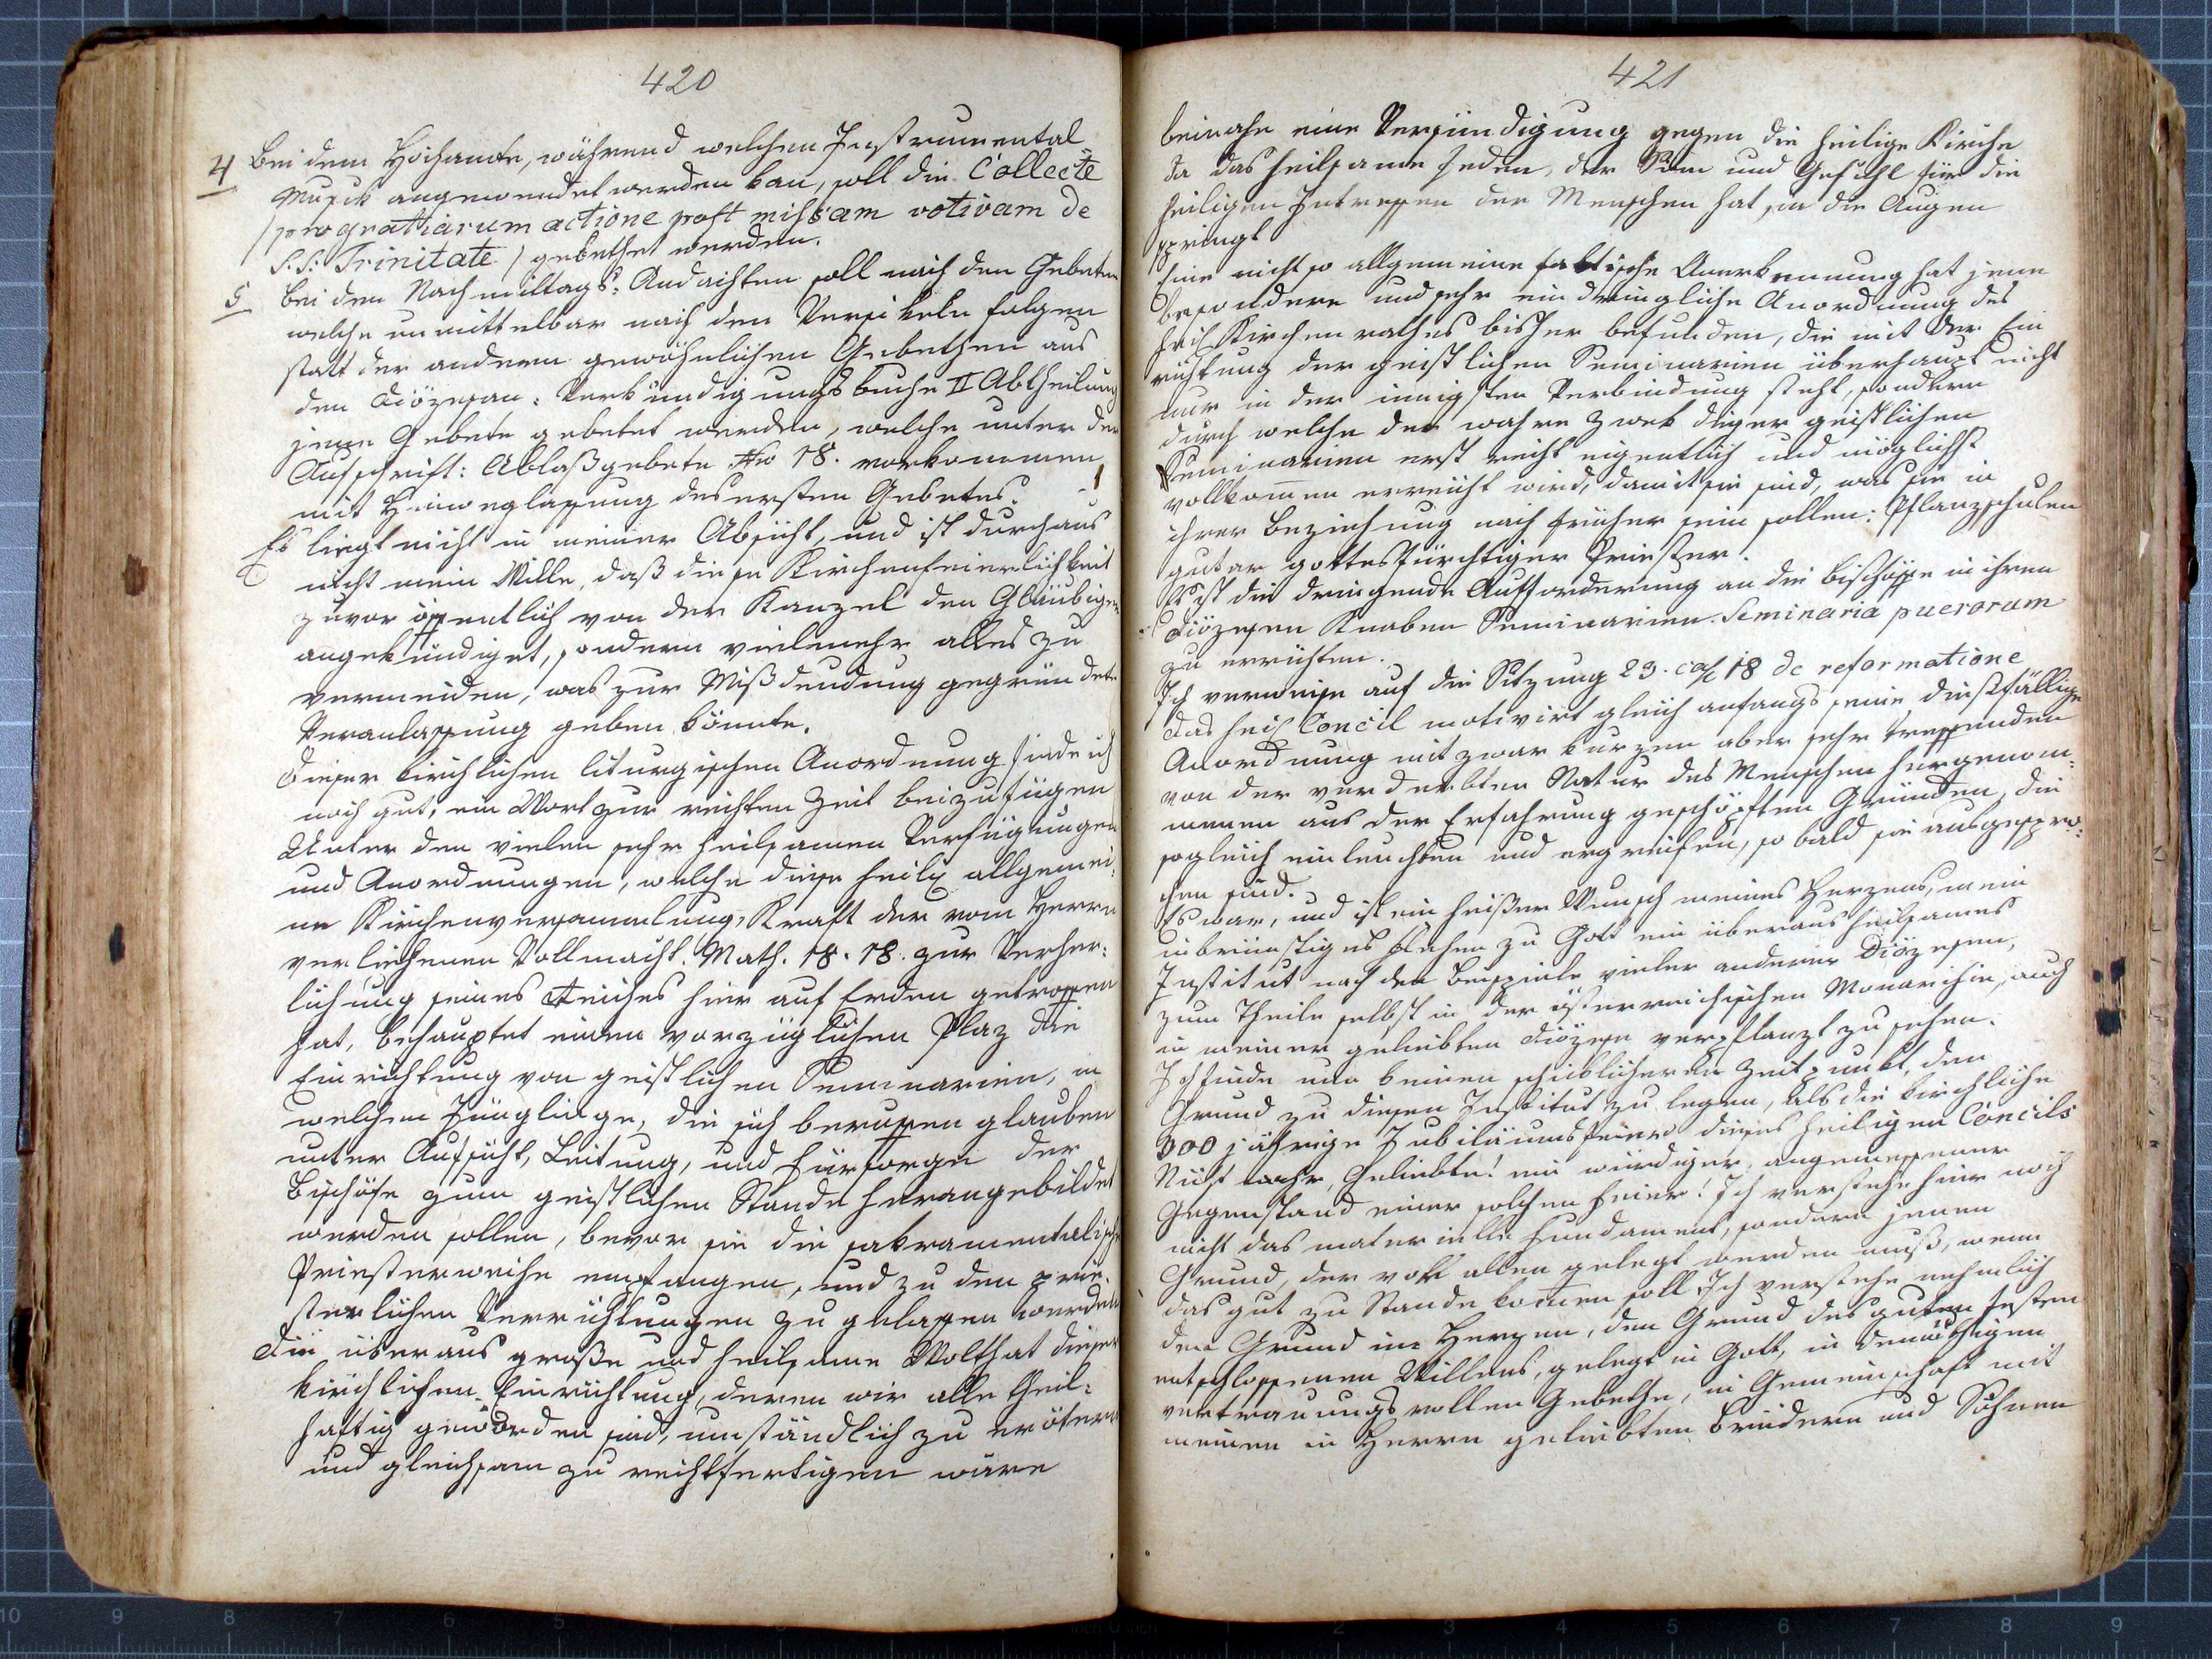 420
4 Bei dem Hochamte, während welchem Instrumental
Musik angewendet werden kan, soll die Collecte
/pro gratiarum actione post missam votivam de
S.S. Trinitate / gebethet werden.
5 Bei den Nachmittags-Andachten soll nach den Gebeten
welche unmittelbar nach den Versikeln folgen
statt der andern gewöhnlichen Gebethen aus
dem Diözesan-Verkündigungsbuche II Abtheilung
jene Gebete gebetet werden, welche unter der
Aufschrift: Ablaßgebete No 18. vorkommen
mit Hinweglassung des ersten Gebetes.
Es liegt nicht in meiner Absicht, und ist durchaus
nicht mein Wille, daß diese Kirchenfeierlichkeit
zuvor öffentlich von der Kanzel den Gläubigen
angekündiget, sondern vielmehr alles zu
vermeiden, was zur Mißdeudung gegründete
Veranlassung geben könnte.
Dieser kirchlichen liturgischen Anordnung finde ich
noch gut, ein Wort zur rechten Zeit beizufügen
Unter den vielen sehr heilsamen Verfügungen
und Anordnungen, welche diese heilg allgemei-
ne Kirchenversammlung, Kraft der vom Herrn
verliehenen Vollmacht. Math. 18. 18. zur Verher-
lichung seines Reiches hier auf Erden getroffen
hat, behauptet einen vorzüglichen Plaz die
Einrichtung von geistlichen Seminarien, in
welchen Jünglinge, die sich berufen glauben
unter Aufsicht, Leitung, und Fürsorge der
Bischöfe zum geistlichen Stande herangebildet
werden sollen, bevor sie die sakramentalische
Priesterweihe empfangen, und zu den prie-
sterlichen Verrichtungen zugelassen werden
Die überaus große und heilsame Wolthat dieser
kirchlichen Einrichtung, deren wir alle theil-
haftig geworden sind, umständlich zu erötern
und gleichsam zu rechtfertigen wäre
421
beinahe eine Versündigung gegen die heilige Kirche
da das heilsame jedem, der Sinn und Gefühl für die
heiligen Intressen der Menschen hat, in die Augen
springt
Eine nicht so allgemeine faktische Anerkennung hat jene
besondere und sehr eindringliche Anordnung des
heil Kirchenrathes bisher befunden, die mit der Ein
richtung der geistlichen Seminarien überhaupt nicht
nur in der innigsten Verbindung steht, sondern
durch welche der wahre Zwek dieser geistlichen
Seminarien erst recht eigentlich und möglichst
vollkommen erreicht wird, damit sie sind, was sie in
ihrer Beziehung nach früher sein sollen: Pflanzschulen
guter gottesfürchtiger Priester.
Es ist die dringende Aufforderung an die Bischöffe in ihren
Diözesen Knaben Seminarien. Seminaria puerorum
zu errichten.
Ich verweise auf die Sitzung 23. cap 18 de reformatione
Das heil Concil motivirt gleich anfangs seine dießfällige
Anordnung mit zwar kurzen aber sehr treffenden
von der verderbten Natur des Menschen hergenom-
menen aus der Erfahrung geschöpften Gründen, die
sogleich einleuchten und ergreifen, so bald sie ausgespro-
chen sind.
Es war, und ist ein heißer Wunsch meines Herzens, mein
inbrünstiges Flehen zu Gott ein überaus heilsames
Institut nach dem Beispiele vieler anderer Diözesen,
zum Theile selbst in der österreichischen Monarchie, auch
in meiner geliebten Diözese verpflanzt zu sehen.
Ich finde nun keinen schicklicheren Zeitpunkt, den
Grund zu diesen Institut zu legen, als die kirchliche
300 jährige Jubiläumsfeier dieses heiligen Concils
Nicht wahr, Geliebte! ein würdiger, angemessener
Gegenstand einer solchen Feier! Ich verstehe hier noch
nicht das materielle Fundament, sondern jenen
Grund, der vor allen gelegt werden muß, wenn
das gut zu Stande kommen soll Ich verstehe nehmlich
den Grund im Herzen, den Grund des guten festen
entschlossenen Willens, gelegt in Gott, in demüthigen
vertrauungsvollen Gebethe, in Gemeinschaft mit
meinen in Herrn geliebten Brüdern und Söhnen